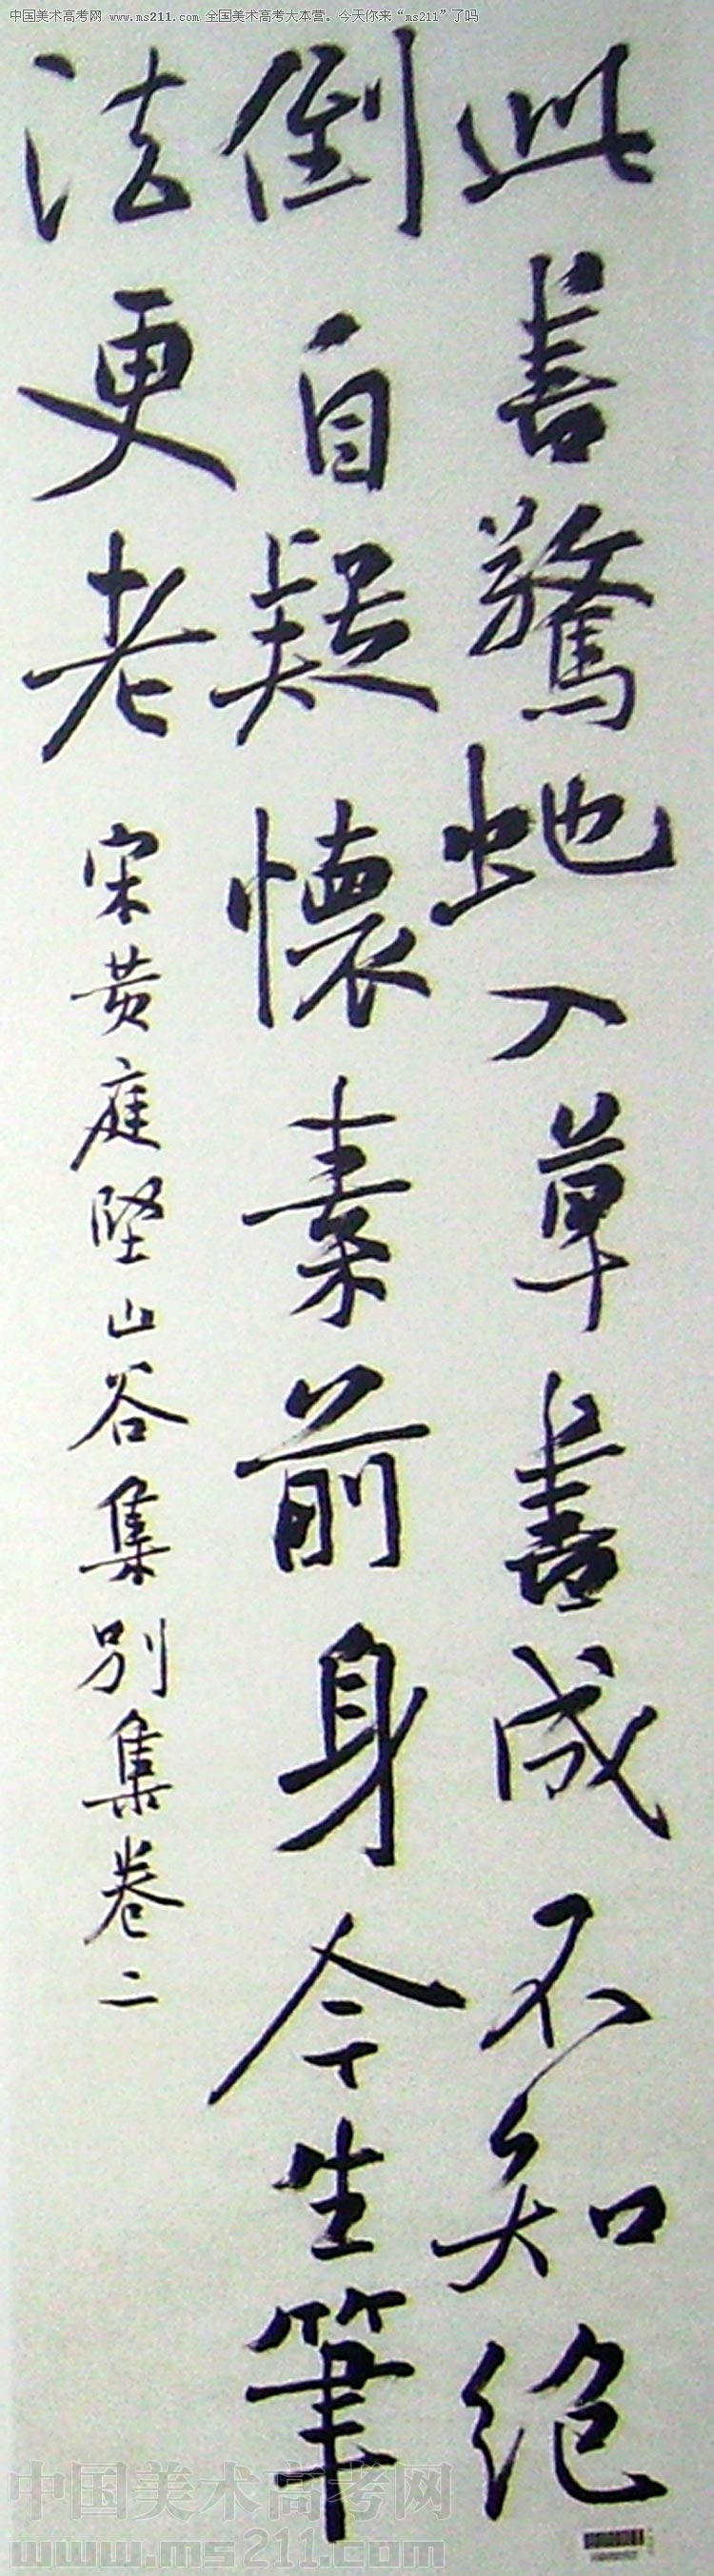 中国美术高考网 www.ms211.com 全国美术高考大本营。今天你来“ms211”了吗
此書驚虵入草書成不知絶
倒自疑懷素前身今生筆
法更老
宋黄庭堅山谷集别集卷二
中国美术高考网
www.ms211.com